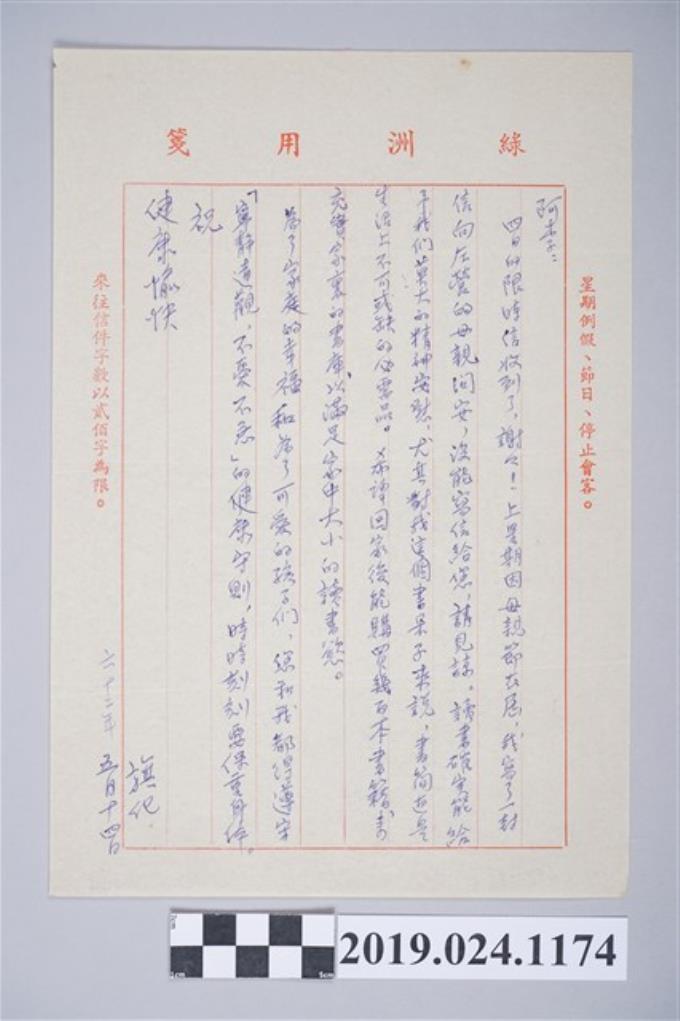 綠洲用箋
星期例假、節日、停止會客。
阿季：
四日的限時信收到了，謝々！上星期因母親節在屆，我寫了一封
信向左營的母親問安，沒能寫信給您，請見諒。讀書確实能給
予我們莫大的精神安慰，尤其對我這個書呆子來說，書簡直是
生活上不可或缺的必需品。希望回家後能購買幾百本書籍來
充實家裏的書庫以滿足家中大小的讀書慾。
為了家庭的幸福和為了可愛的孩子們，您和我都得遵守
「寧靜達觀，不憂不急」的健康守則，時時刻刻要保重身体。
祝
健康愉快
旗化
六十二年五月十四日
來往信件字數以貳佰字為限。
2019.024.1174